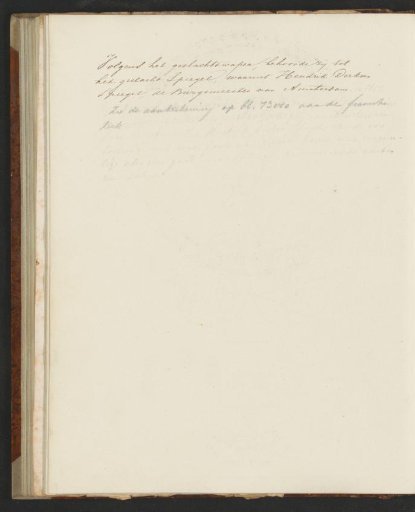 Volgens het geslachtswapen, behoorde zij tot
het geslacht Spiegel, waaruit Hendrik Dirksz
Spiegel de Burgemeester van Amsterdam.
Zie de aanteekening op bl. van de fransche
kerk